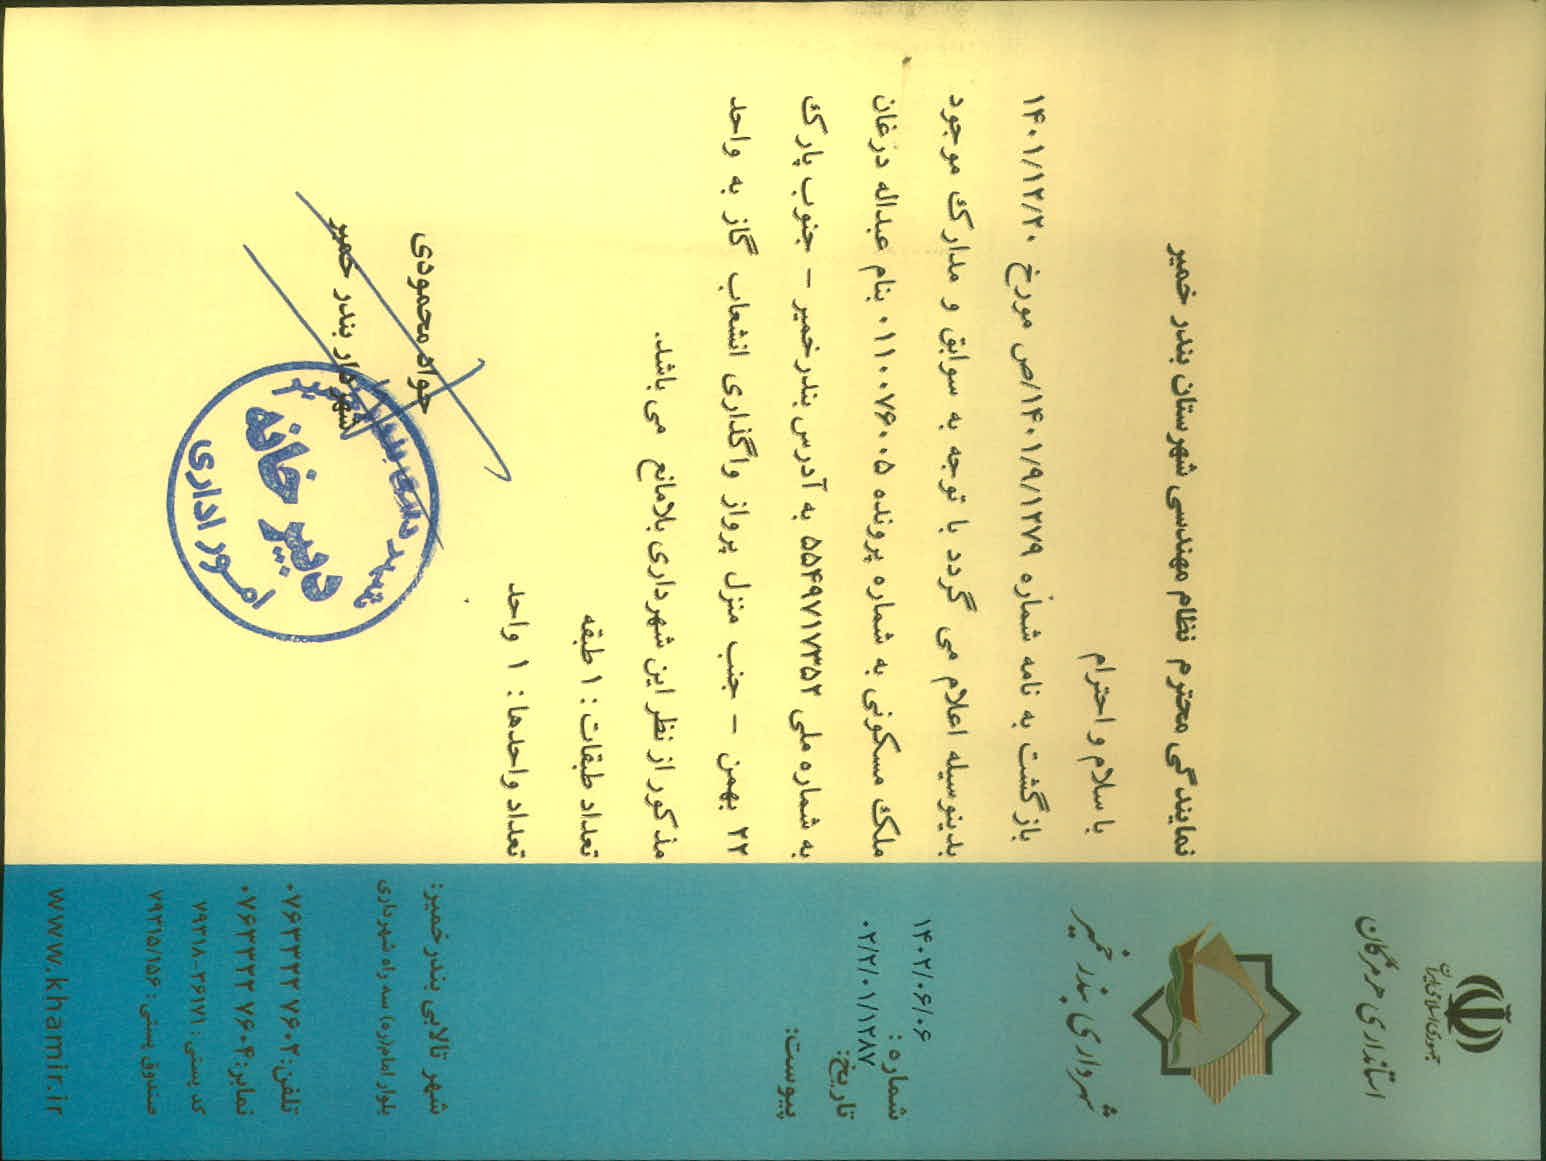 جمهوری اسلامی ایران
استانداری هرمزگان
شهرداری بندر خمیر
۱۴۰۲/۰۶/۰۶
شماره:
۰۲/۲/۰۱/۱۲۸۷
تاریخ:
پیوست:
شهر تالابی بندرخمیر:
بلوار امام(ره) سه راه شهرداری
تلفن: ۰۷۶۳۳۲۲۷۶۰۲
نمابر: ۰۷۶۳۳۲۲۷۶۰۴
کد پستی: ۳۶۱۷۱-۷۹۳۱۸
صندوق پستی: ۷۹۳۱۵/۱۵۶
www.khamir.ir
نمایندگی محترم نظام مهندسی شهرستان بندر خمیر
با سلام و احترام
بازگشت به نامه شماره ۱۴۰۱/۹/۱۲۷۹/ص مورخ ۱۴۰۱/۱۲/۲۰
بدینوسیله اعلام می گردد با توجه به سوابق و مدارک موجود
ملک مسکونی به شماره پرونده ۰۱۱۰۰۷۶۰۰۵ بنام عبداله درغان
به شماره ملی ۵۵۴۹۷۱۷۳۵۲ به آدرس بندرخمیر - جنوب پارک
۲۲ بهمن - جنب منزل پرواز واگذاری انشعاب گاز به واحد
مذکور از نظر این شهرداری بلامانع می باشد.
تعداد طبقات: ۱ طبقه
تعداد واحدها: ۱ واحد
جواد محمودی
شهردار بندر خمیر
دبیر خانه
امور اداری